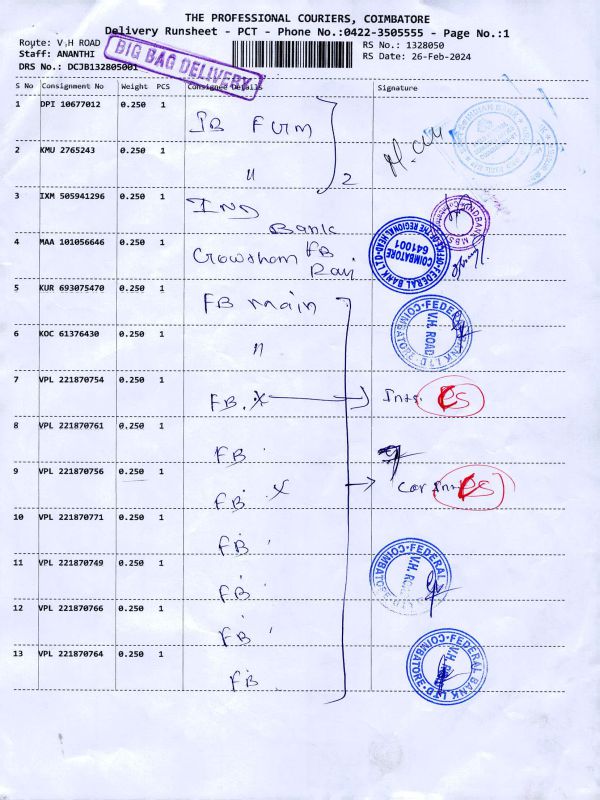 THE PROFESSIONAL COURIERS, COIMBATORE
Delivery Runsheet - PCT - Phone No.:0422-3505555 - Page No.:1
Route: V.H ROAD
Staff: ANANTHI
DRS No.: DCJB132805001
BIG BAG DELIVERY
RS No.: 1328050
RS Date: 26-Feb-2024
S No Consignment No Weight PCS Consignee Details Signature
1 DPI 10677012 0.250 1
IB Firm
2 KMU 2765243 0.250 1
" 2
3 IXM 505941296 0.250 1
IND Bank
4 MAA 101056646 0.250 1
FB
COIMBATORE 641001
5 KUR 693075470 0.250 1
FB main
FEDERAL BANK LTD COIMBATORE V.H. ROAD
6 KOC 61376430 0.250 1
"
7 VPL 221870754 0.250 1
FB. x
8 VPL 221870761 0.250 1
FB
9 VPL 221870756 0.250 1
FB. x
10 VPL 221870771 0.250 1
FB
11 VPL 221870749 0.250 1
FB
FEDERAL BANK LTD COIMBATORE V.H. ROAD
12 VPL 221870766 0.250 1
FB
13 VPL 221870764 0.250 1
FB
FEDERAL BANK LTD COIMBATORE V.H. ROAD